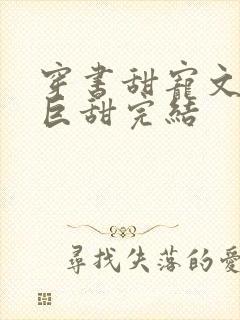 穿书甜宠文
巨甜完结
尋找失落的愛